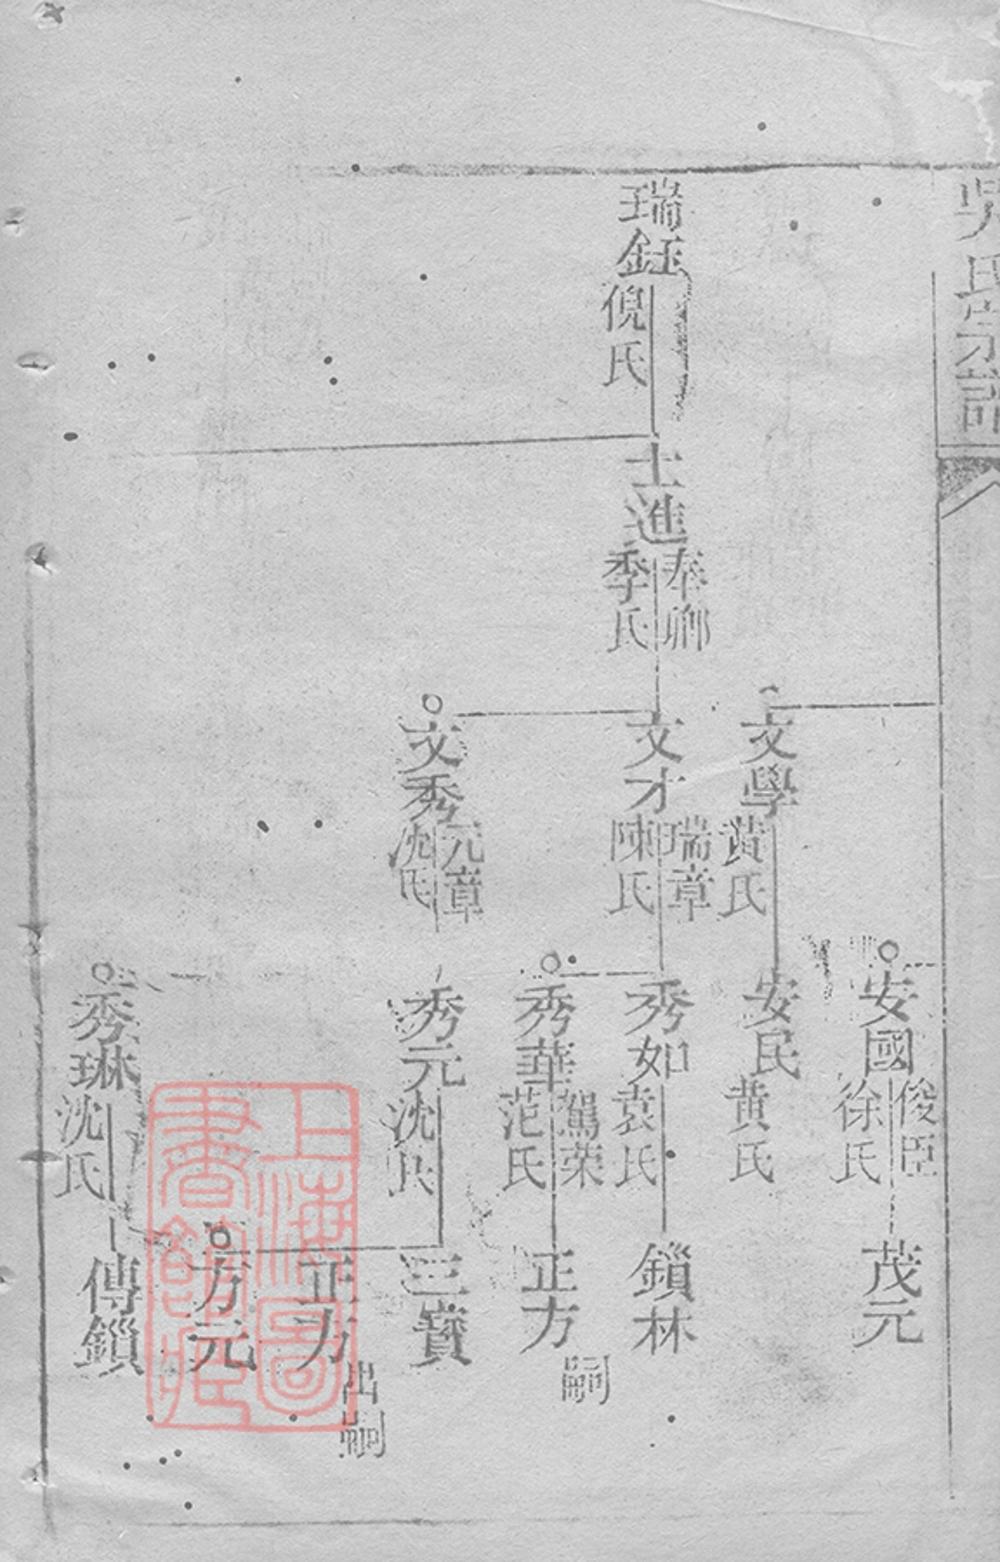 吳氏宗譜
瑞鈺
倪氏
士進
奉卿
季氏
文學
黃氏
文才
瑞章
陳氏
文秀
元章
沈氏
安國
俊臣
徐氏
安民
黃氏
秀如
袁氏
秀華
駕榮
范氏
秀元
沈氏
秀琳
沈氏
茂元
鎖林
正方
嗣
三寶
正方
出嗣
方元
傳鎖
上海圖書館藏